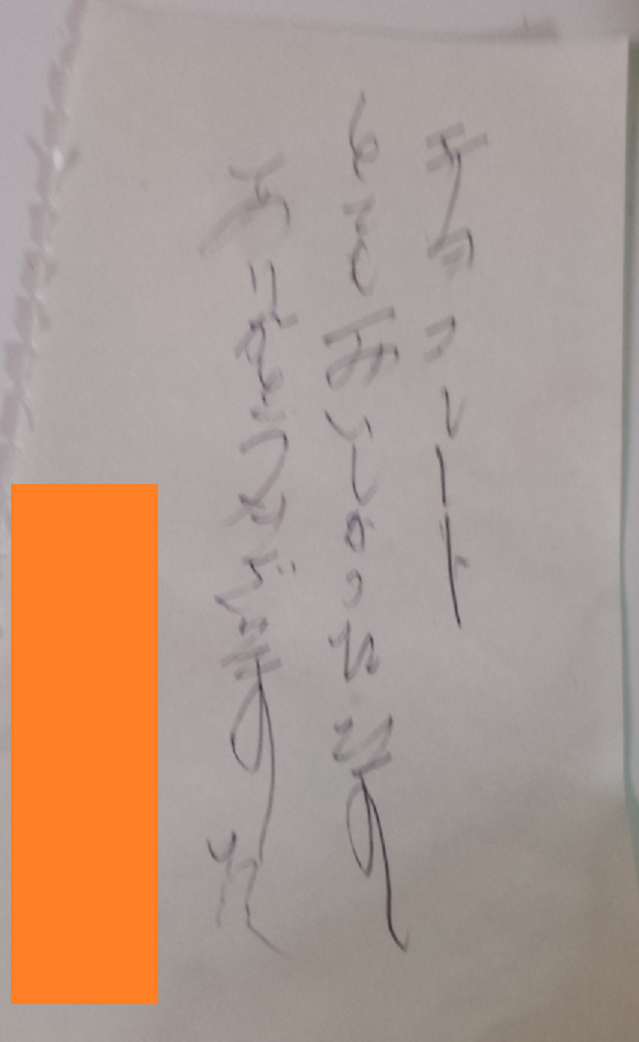 チョコレート
とてもおいしかったです
ありがとうございました